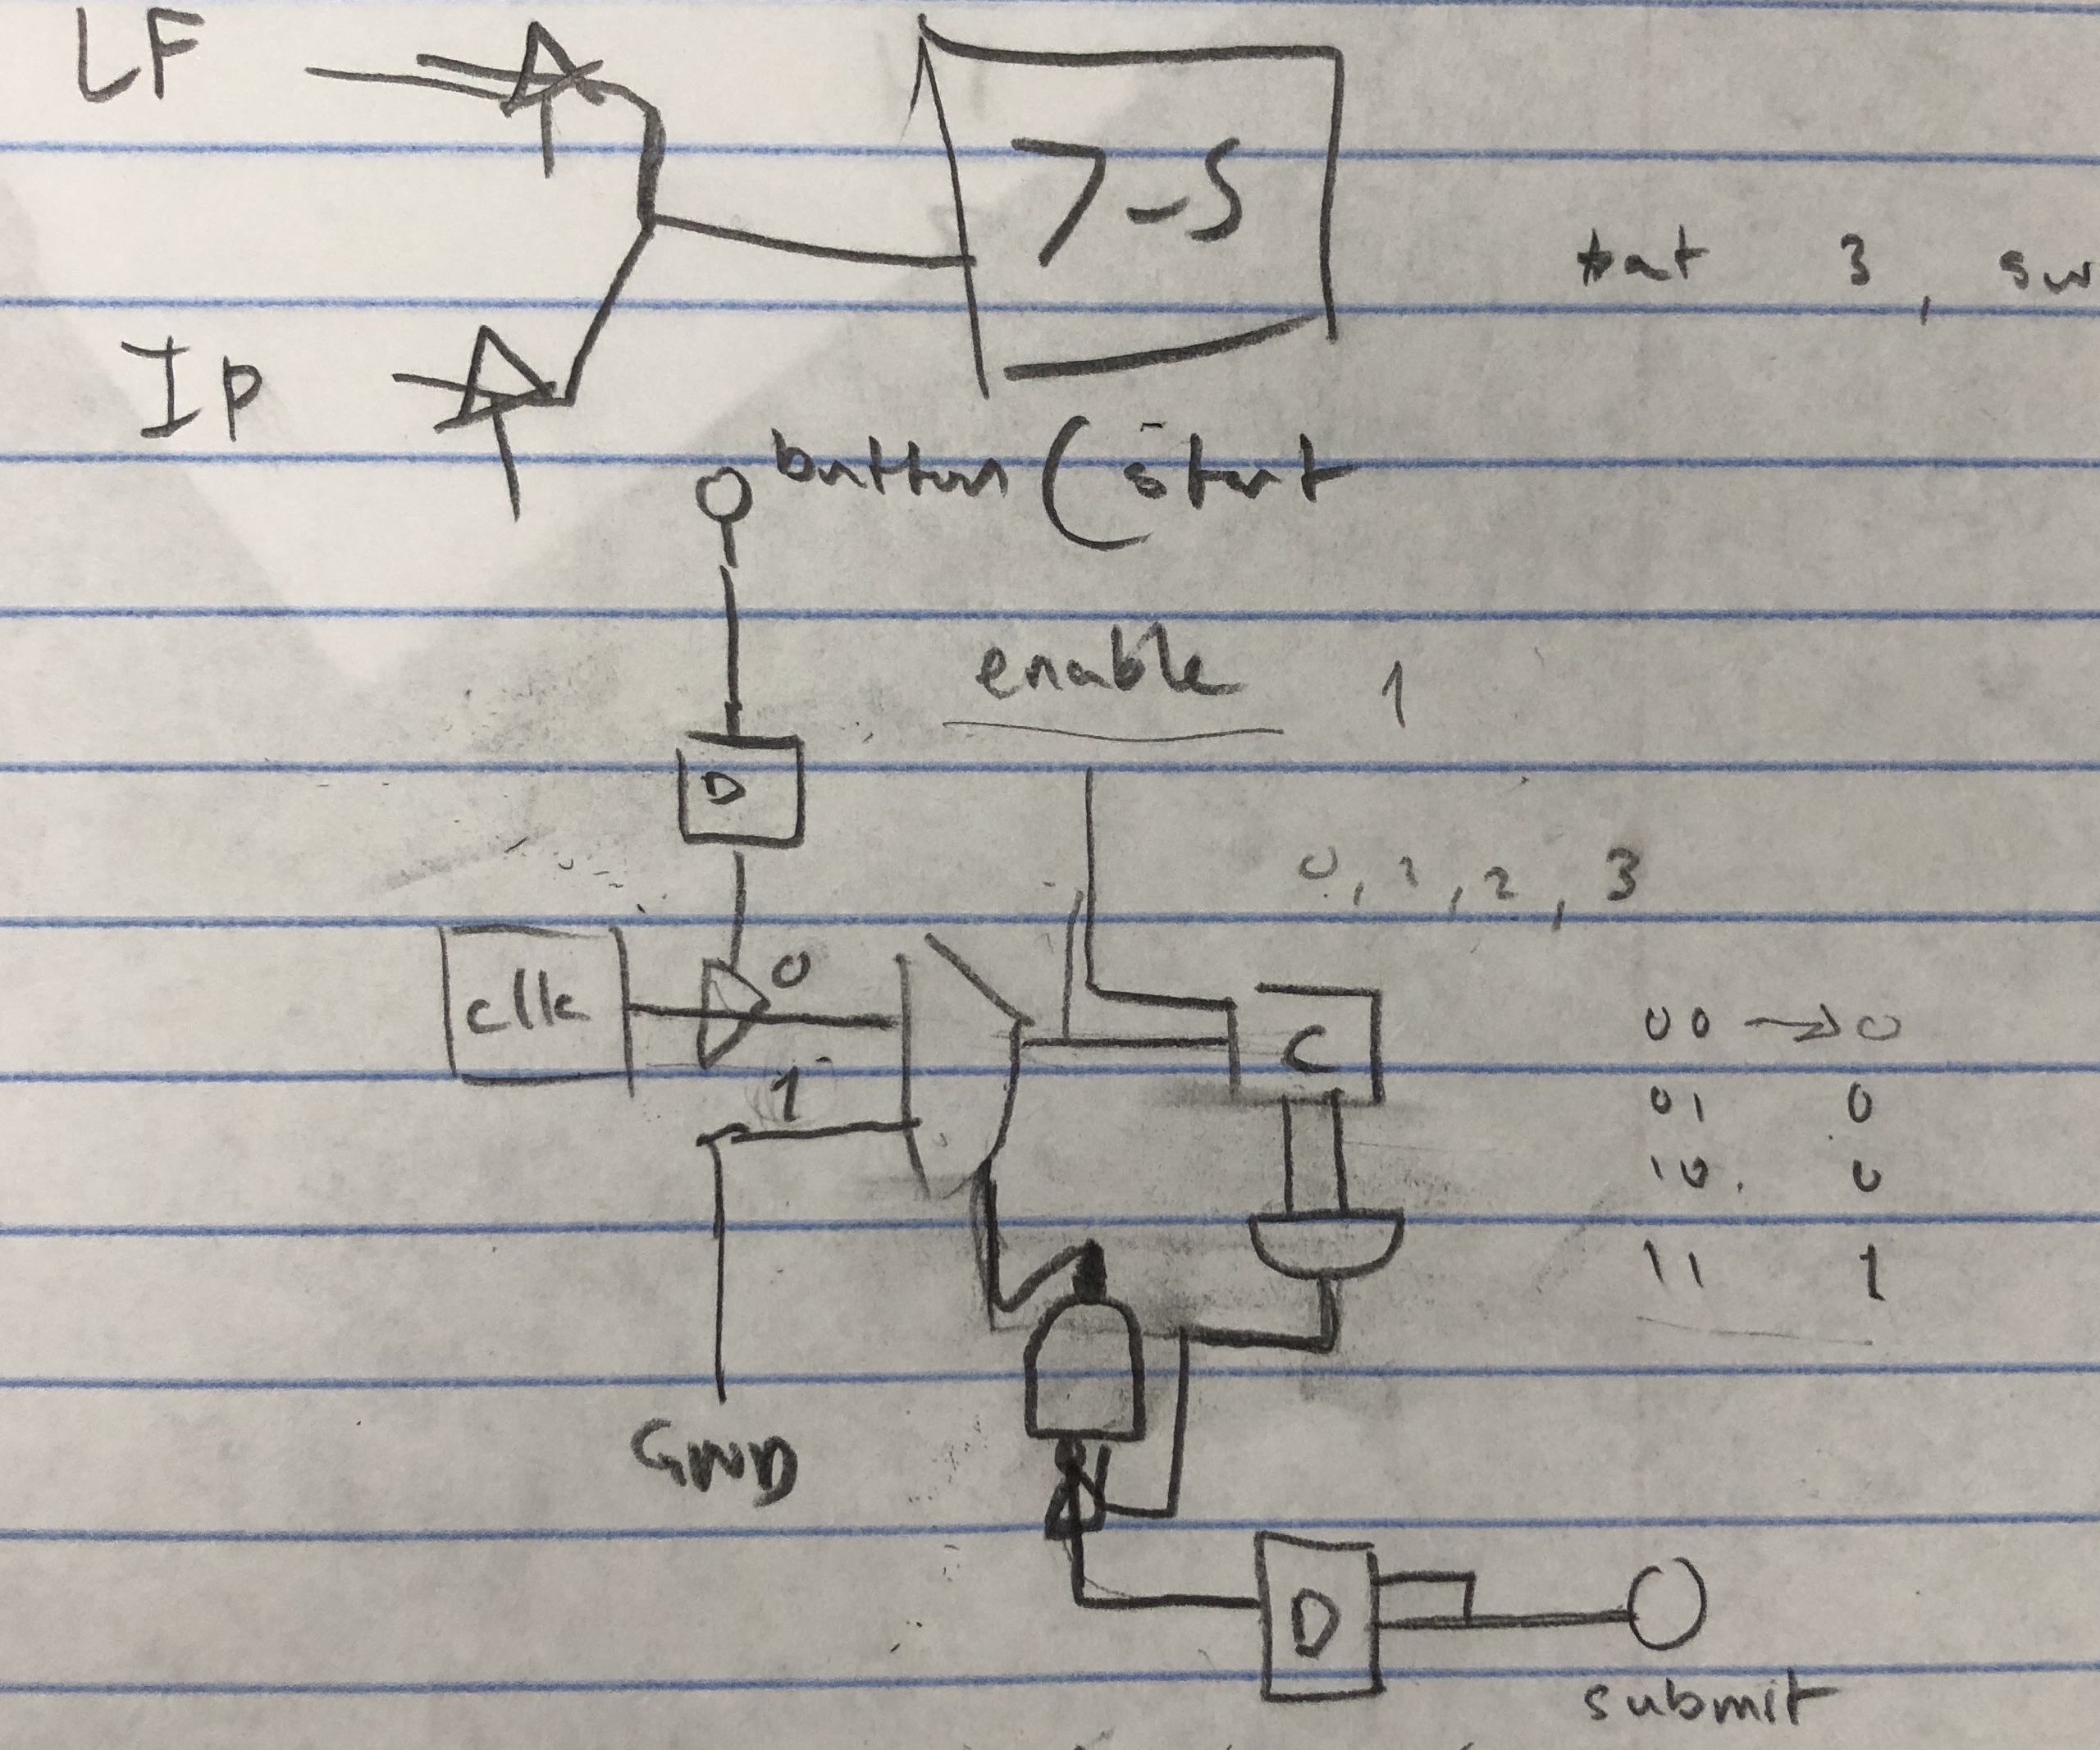 LF
7-S
3, sw
IP
button (start
enable 1
D
0, 1, 2, 3
clk
0
C
00 → 0
1
01 0
10. 0
11 1
GND
D
submit